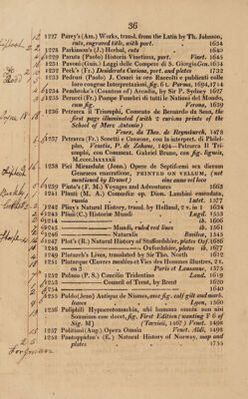 36
1227 Parey's (Am.) Works, transl. from the Latin by Th. Johnson,
cuts, engraved title, with port. 1634
1228 Parkinson's (J.) Herbal, cuts
1229 Paruta (Paolo) Historia Vinetiana, port. Vinet. 1645
1231 Pavoni (Giu.) Leggi delle Compere di S. Giorgio Gen. 1634
1232 Peck's (Fr.) Desiderata Curiosa, port. and plates 1732
1233 Pedrusi (Paolo) J. Cesari in oro Raccolti e publicati colle
loro congrue Interpretazioni, fig. 6 t. Parma, 1694, 1714
1234 Pembroke's (Countess of) Arcadia, by Sir P. Sydney 1627
1235 Perucci (Fr.) Pompe Funebri di tutti le Nationi del Mondo,
cum fig. Verona, 1639
1236 Petrarca il Triomphi, Comento de Bernardo de Sena, the
first page illuminated (with 2 curious prints of the
School of Marc Antonio)
Venex. da Theo. de Reynsburch, 1478
1237 Petrarca (Fr.) Sonetti e Canzone, con la interpret. di Philel-
pho, Venetia, P. de Zohane, 1494—Petrarca Il Tri-
omphi, con Comment. Gabriel Bruno, con fig. ligneis,
M.CCCC.LXXXXIII
1238 Pici Mirandula (Joan.) Opera de Septiformi sex dierum
Geneseos enarratione, PRINTED ON VELLUM, (not
mentioned by Brunet) sine anno et loco
1239 Pinto's (F. M.) Voyages and Adventures 1663
1241 Plauti (M. A.) Comediæ op. Dion. Lambini emendata,
russia Lutet. 1577
1242 Pliny's Natural History, transl. by Holland, 2 v. in 1 1634
1243 Plinii (C.) Historiæ Mundi Lugd. 1553
1244 ib. 1606
1245 Mundi, ruled red lines ib. 1561
1246 Naturalis Basileæ, 1545
1247 Plot's (R.) Natural History of Staffordshire, plates Oxf. 1686
1248 Oxfordshire, plates ib. 1677
1249 Plutarch's Lives, translated by Sir Tho. North 1676
1251 Plutarque Œuvres morales et Vies des Hommes illustres, 2 t.
en 3 Paris et Lausanne, 1575
1252 Polano (P. S.) Concilio Tridentino Lond. 1619
1253 Council of Trent, by Brent 1620
1254 1640
1255 Poldo (Jean) Antique de Nismes, avec fig. calf gilt and marb.
leaves Lyon, 1560
1256 Poliphili Hypnerotomachia, ubi humana omnia non nisi
Somnium esse docet, fig. First Edition (wanting F 6 of
Sig. M) (Tarvisii, 1467) Venet. 1499
1257 Politiani (Ang.) Opera Omnia Venet. Aldi, 1498
1258 Pontoppidan's (E.) Natural History of Norway, map and
plates 1755